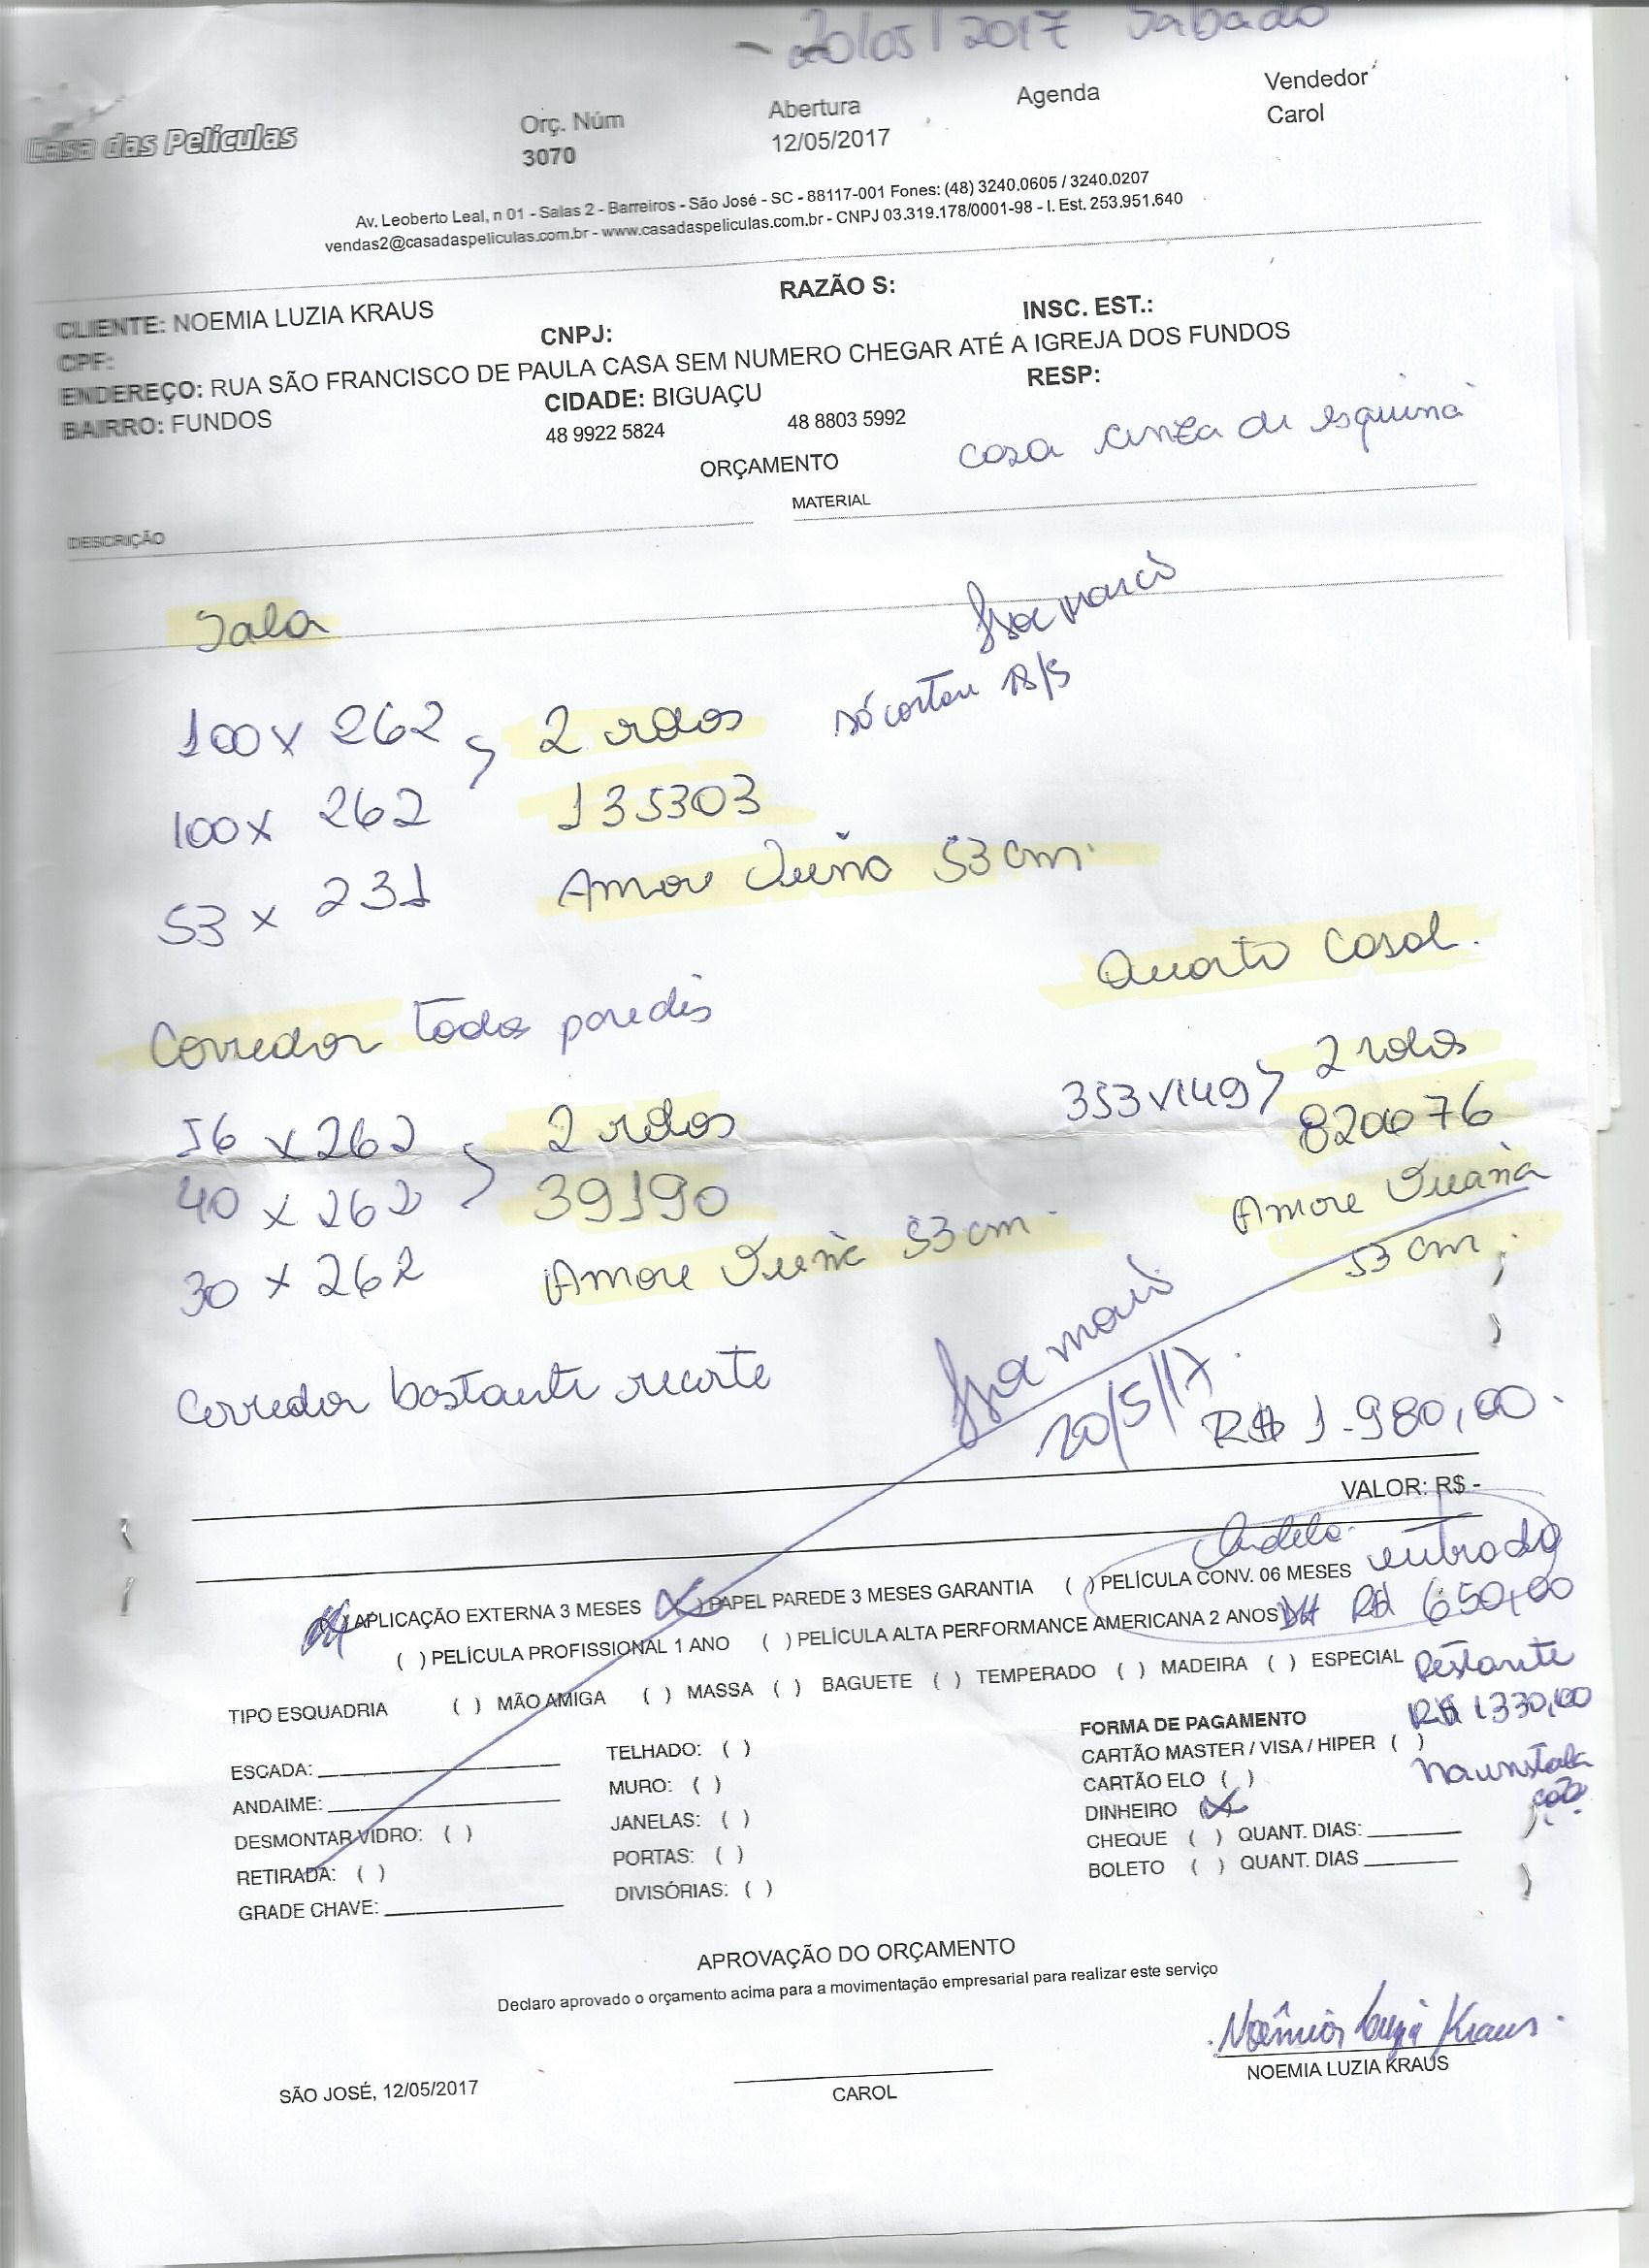 20/05/2017 Sabado
Casa das Películas
Orç. Núm
3070
Abertura
12/05/2017
Agenda
Vendedor
Carol
Av. Leoberto Leal, n 01 - Salas 2 - Barreiros - São José - SC - 88117-001 Fones: (48) 3240.0605 / 3240.0207
vendas2@casadaspeliculas.com.br - www.casadaspeliculas.com.br - CNPJ 03.319.178/0001-98 - I. Est. 253.951.640
RAZÃO S:
CLIENTE: NOEMIA LUZIA KRAUS
CPF:
CNPJ:
INSC. EST.:
ENDEREÇO: RUA SÃO FRANCISCO DE PAULA CASA SEM NUMERO CHEGAR ATÉ A IGREJA DOS FUNDOS
BAIRRO: FUNDOS
CIDADE: BIGUAÇU
RESP:
48 9922 5824
48 8803 5992
casa cinza de esquina
ORÇAMENTO
DESCRIÇÃO
MATERIAL
Sala
só cortou 18/5
100 x 262 2 rolos
100 x 262 135303
53 x 231 Amore 53 cm.
Corredor todas paredes
Quarto Casal.
56 x 262 2 rolos
40 x 262 39190
30 x 262 Amore 53 cm.
353 x 149 2 rolos
820076
Amore
53 cm.
Corredor bastante recorte
20/5/17.
R$ 1.980,00.
VALOR: R$ -
entrada
( ) APLICAÇÃO EXTERNA 3 MESES (X) PAPEL PAREDE 3 MESES GARANTIA ( ) PELÍCULA CONV. 06 MESES
( ) PELÍCULA PROFISSIONAL 1 ANO ( ) PELÍCULA ALTA PERFORMANCE AMERICANA 2 ANOS
R$ 650,00
TIPO ESQUADRIA ( ) MÃO AMIGA ( ) MASSA ( ) BAGUETE ( ) TEMPERADO ( ) MADEIRA ( ) ESPECIAL
Restante
R$ 1330,00
na instalação
ESCADA:
ANDAIME:
DESMONTAR VIDRO: ( )
RETIRADA: ( )
GRADE CHAVE:
TELHADO: ( )
MURO: ( )
JANELAS: ( )
PORTAS: ( )
DIVISÓRIAS: ( )
FORMA DE PAGAMENTO
CARTÃO MASTER / VISA / HIPER ( )
CARTÃO ELO ( )
DINHEIRO (X)
CHEQUE ( ) QUANT. DIAS:
BOLETO ( ) QUANT. DIAS
APROVAÇÃO DO ORÇAMENTO
Declaro aprovado o orçamento acima para a movimentação empresarial para realizar este serviço
Noêmia Luzia Kraus.
NOEMIA LUZIA KRAUS
SÃO JOSÉ, 12/05/2017
CAROL